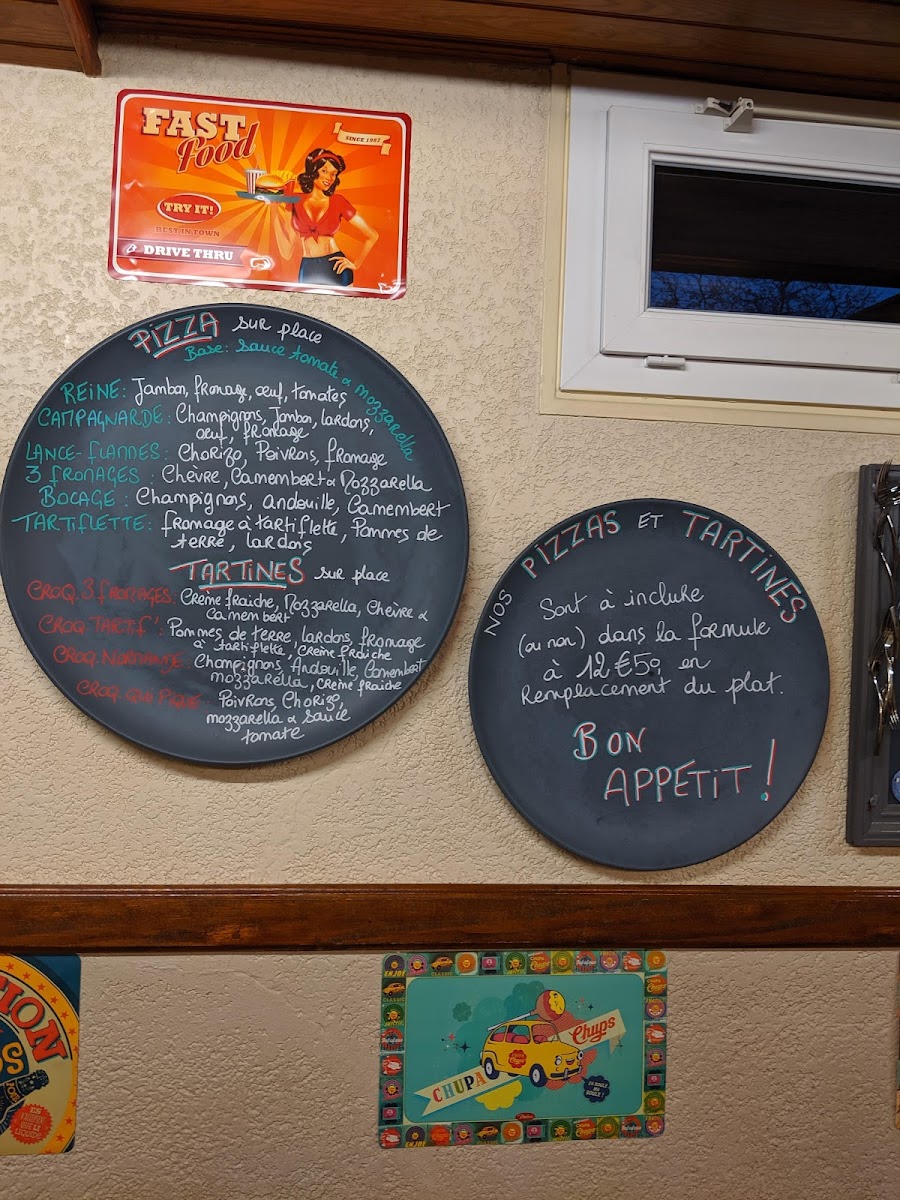 FAST
Food
SINCE 1987
TRY IT!
BEST IN TOWN
DRIVE THRU
PIZZA sur place
Base: sauce tomate & mozzarella
REINE: Jambon, fromage, œuf, tomates
CAMPAGNARDE: Champignons, Jambon, lardons,
œuf, fromage
LANCE-FLAMMES: Chorizo, Poivrons, fromage
3 FROMAGES: Chèvre, Camembert & Mozzarella
BOCAGE: Champignons, andouille, Camembert
TARTIFLETTE: fromage à tartiflette, Pommes de
terre, lardons
TARTINES sur place
CROQ. 3 FROMAGES: Crème fraiche, Mozzarella, Chèvre &
Camembert
CROQ TARTIF': Pommes de terre, lardons, fromage
à tartiflette, crème fraiche
CROQ. NORMANDE: Champignons, Andouille, Camembert
mozzarella, crème fraiche
CROQ. QUI PIQUE: Poivrons, Chorizo,
mozzarella & sauce
tomate
NOS PIZZAS ET TARTINES
Sont à inclure
(ou non) dans la formule
à 12€50 en
Remplacement du plat.
BON
APPÉTIT!
CHUPA
Chups
EN ROULE
MA
BOULE!
ENJOY
CLASSIC
TION
OS